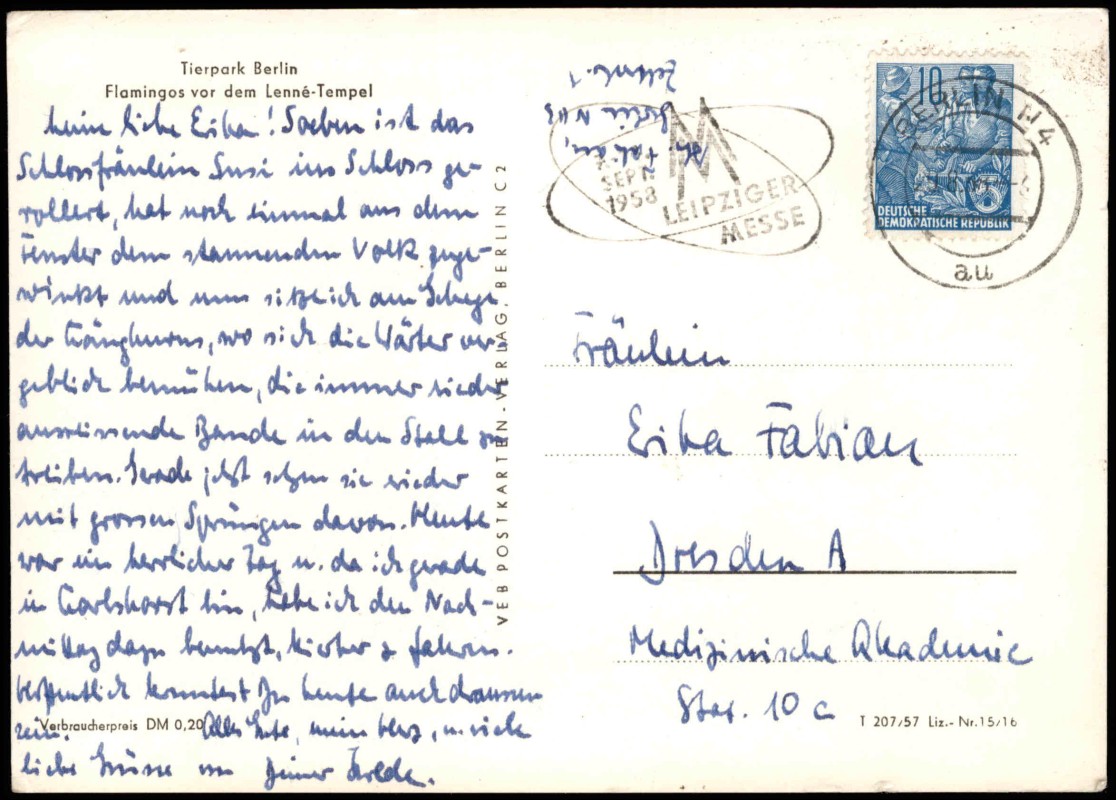 Tierpark Berlin
Flamingos vor dem Lenné-Tempel
Meine liebe Erika! Soeben ist das
Schlossfräulein Susi ins Schloss ge-
rollert, hat noch einmal aus dem
Fenster dem staunenden Volk zuge-
winkt und nun sitze ich am Gehege
der Känghurus, wo sich die Wärter ver-
geblich bemühen, die immer wieder
ausreissende Bande in den Stall zu
treiben. Gerade jetzt setzen sie wieder
mit grossen Sprüngen davon. Heute
war ein herrlicher Tag u. da ich gerade
in Karlshorst bin, habe ich den Nach-
mittag dazu benutzt, hierher z. fahren.
Hoffentlich konntest Du heute auch draussen
sein. Alles Gute, mein Herz, u. viele
liebe Grüsse von Deiner
Verbraucherpreis DM 0,20
VEB POSTKARTEN-VERLAG, BERLIN C 2
Fabian,
Berlin
SEPT.
1958
M
LEIPZIGER
MESSE
10
DEUTSCHE
DEMOKRATISCHE REPUBLIK
BERLIN N4
au
Fräulein
Erika Fabian
Dresden A
Medizinische Akademie
Stat. 10 c
T 207/57 Liz.-Nr. 15/16